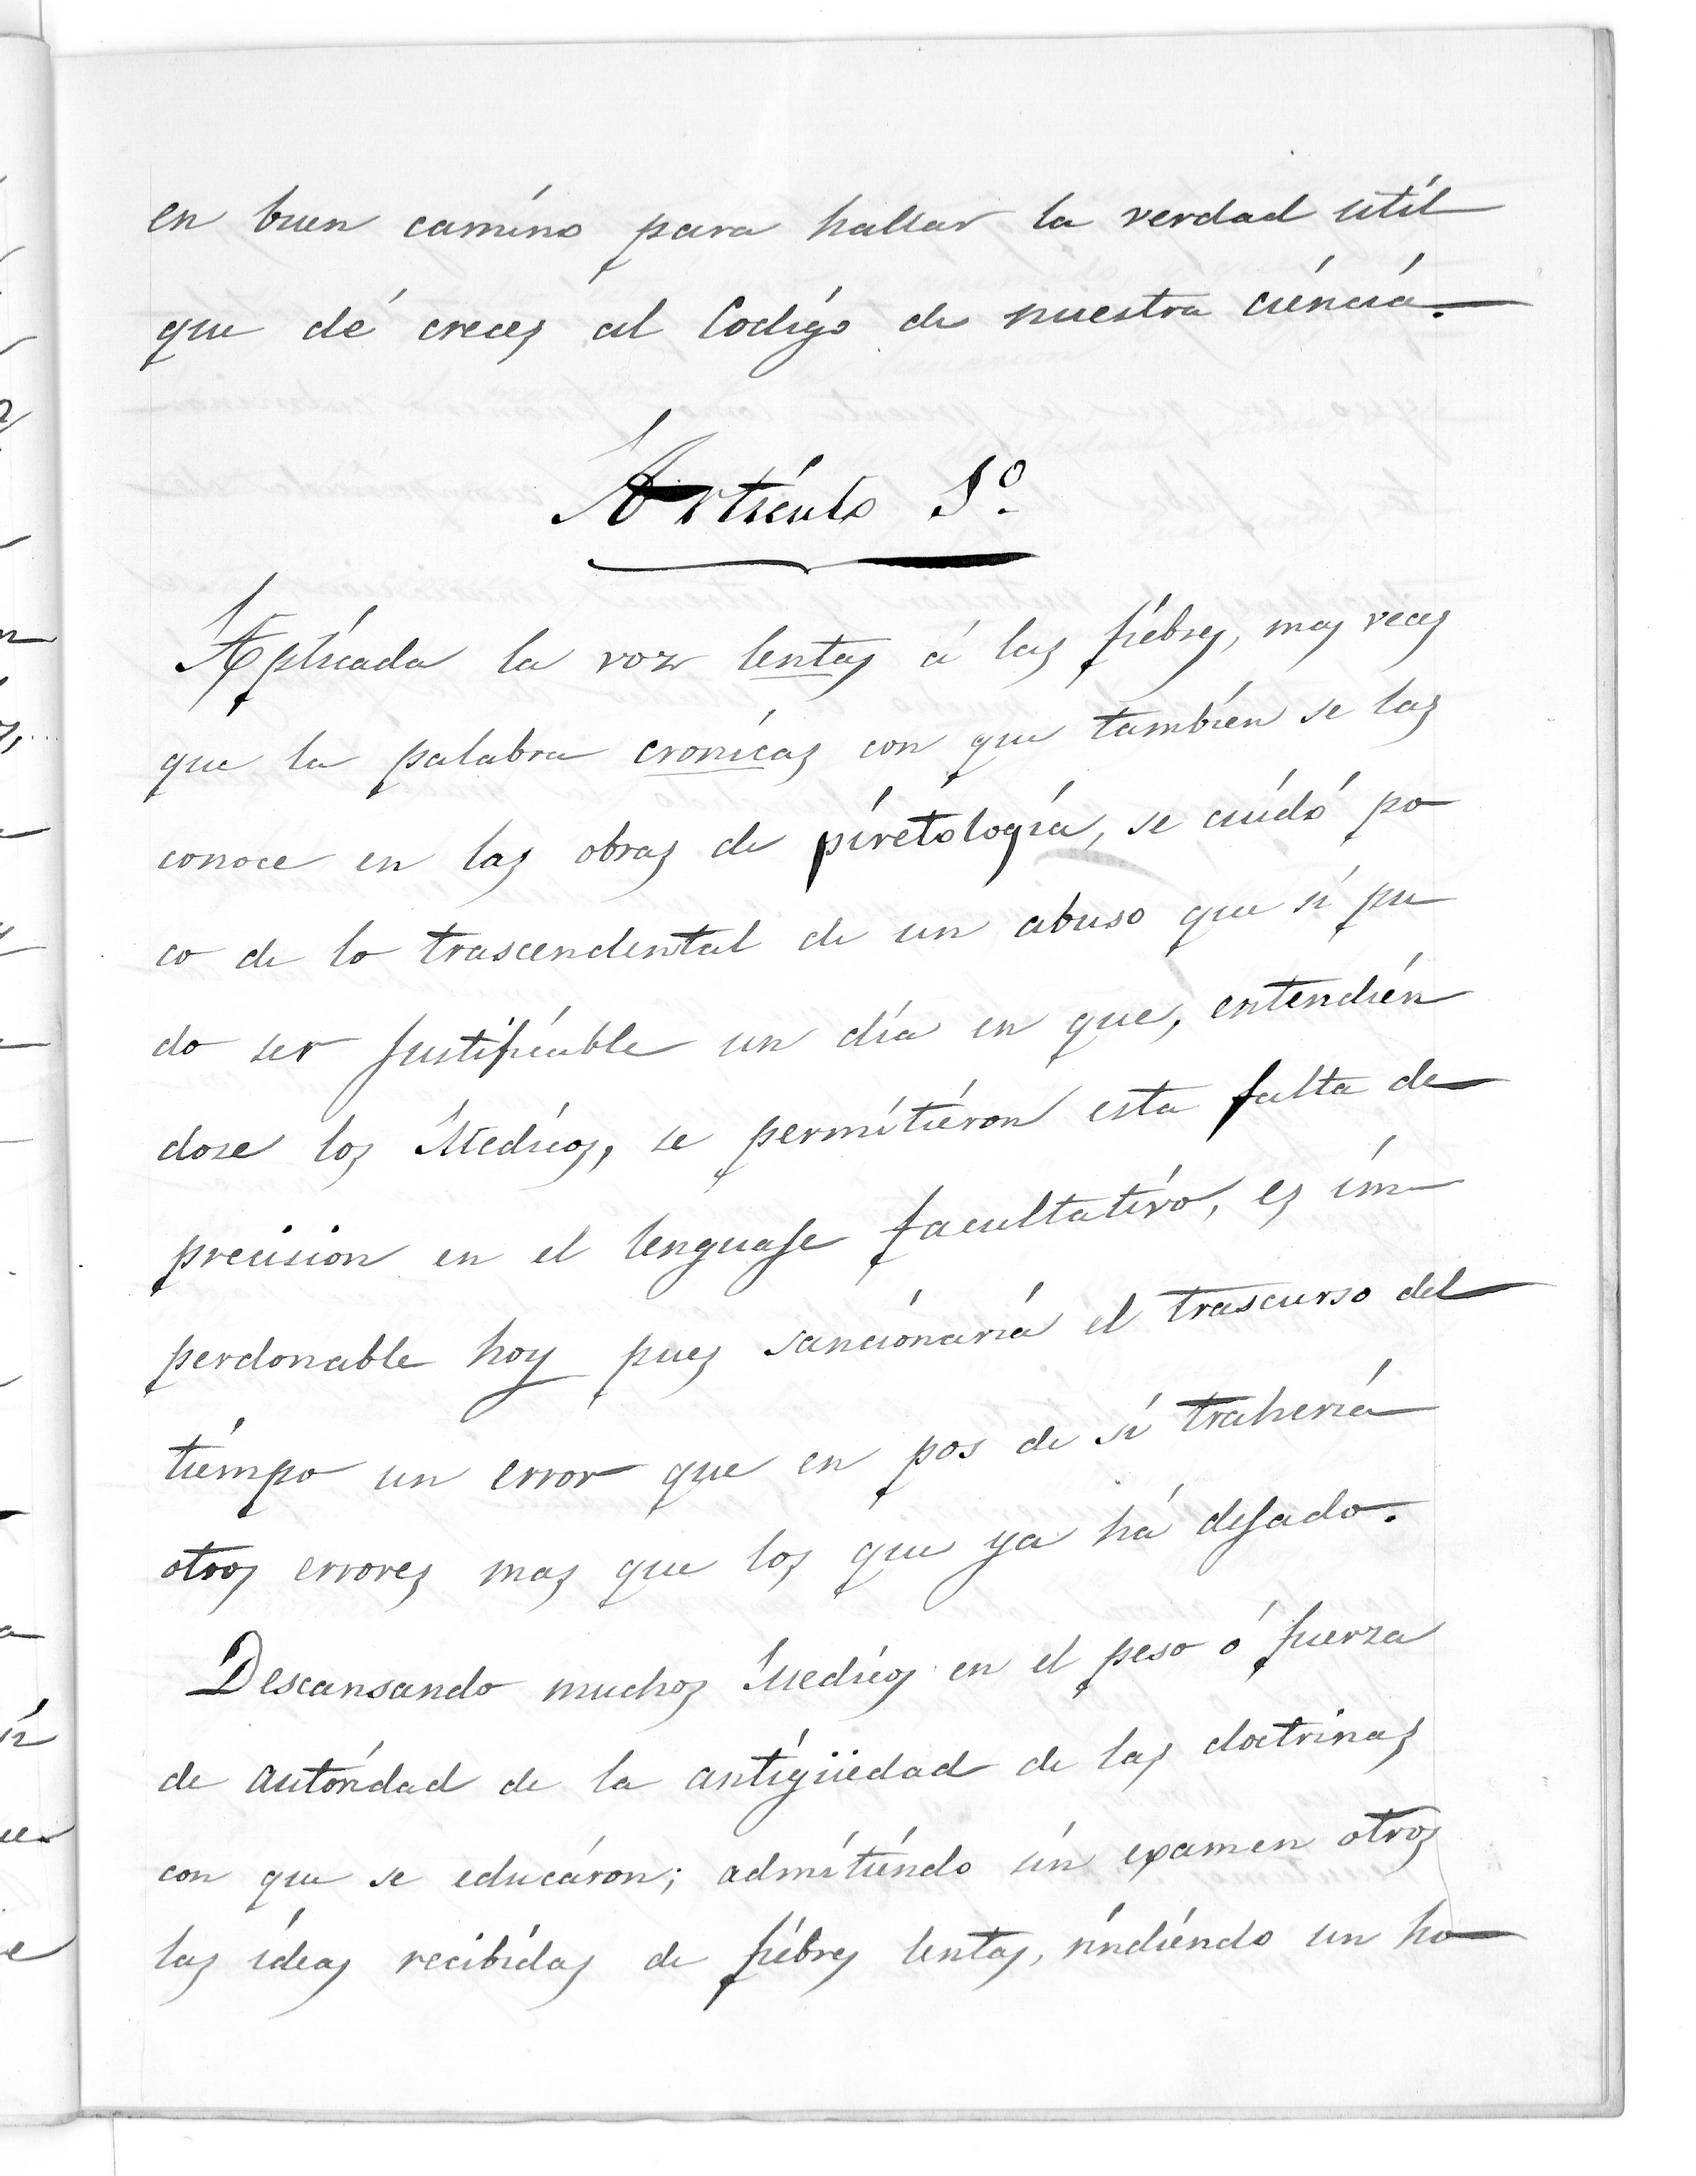 en buen camino para hallar la verdad util
que dé creces al Codigo de nuestra ciéncia.
Artículo 1º
Aplicada la voz lentas á las fiébres, mas veces
que la palabra cronicas con que tambien se las
conoce en las obras de piretología, se cuidó po
co de lo trascendental de un abuso que si pu
do ser justificable un dia en que, entendién
dose los Medicos, se permitiéron esta falta de
precision en el lenguaje facultativo, es im
perdonable hoy pues sancionaría el trascurso del
tiémpo un error que en pos de sí traheria
otros errores mas que los que ya há dejado.
Descansando muchos Medicos en el peso ó fuerza
de autoridad de la antigüedad de las doctrinas
con que se educáron; admitiéndo sin examen otros
las ideas recibidas de fiébres lentas, rindiéndo un ho